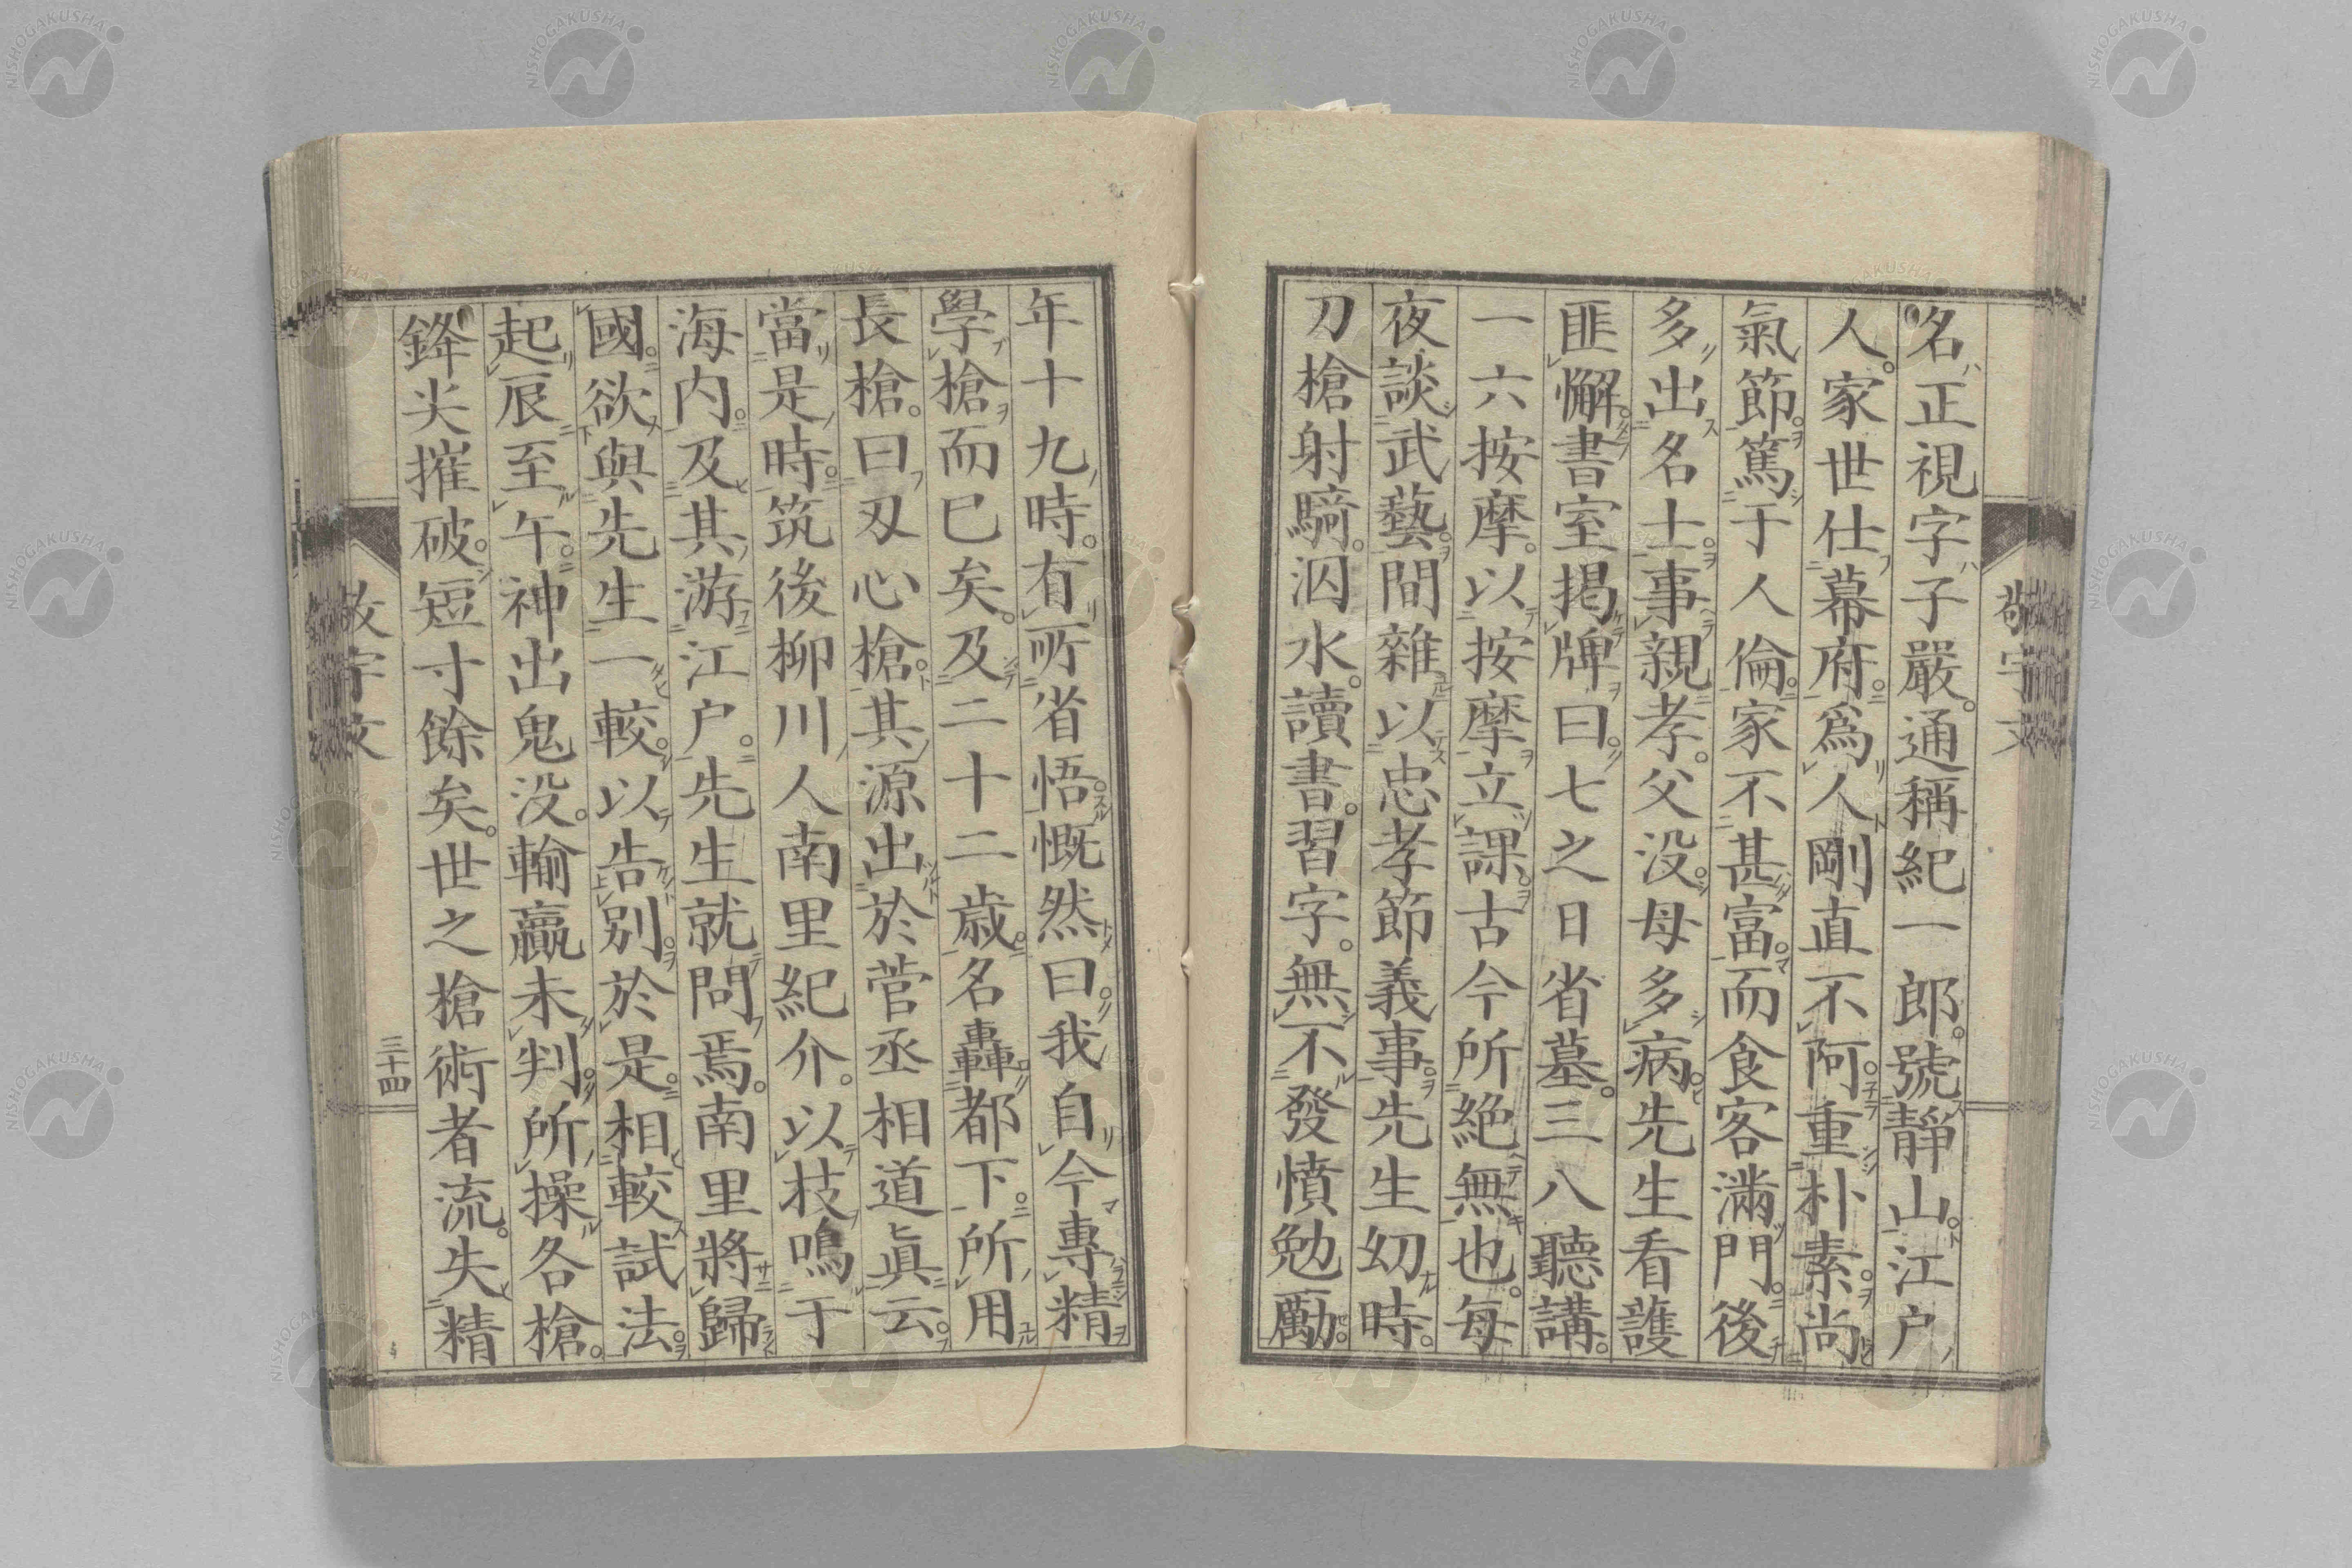 名正視字子嚴。通稱紀一郎。號靜山。江户
人。家世仕幕府。爲人剛直不阿。重朴素。尚
氣節。篤于人倫。家不甚富。而食客滿門。後
多出名士。事親孝。父没。母多病。先生看護
匪懈。書室掲牌曰。七之日省墓。三八聽講。
一六按摩。以按摩立課。古今所絶無也。每
夜談武藝。間雜以忠孝節義事。先生幼時。
刀槍射騎。泅水。讀書。習字。無不發憤勉勵。
年十九時。有所省悟。慨然曰。我自今專精
學槍而已矣。及二十二歳。名轟都下。所用
長槍。曰刄心槍。其源出於菅丞相道眞云。
當是時。筑後柳川人南里紀介。以技鳴于
海内。及其游江户。先生就問焉。南里將歸
國。欲與先生一較。以告別。於是相較試法。
起辰至午。神出鬼没。輸贏未判。所操各槍。
鋒尖摧破。短寸餘矣。世之槍術者流。失精
敬宇文
三十四
NISHOGAKUSHA